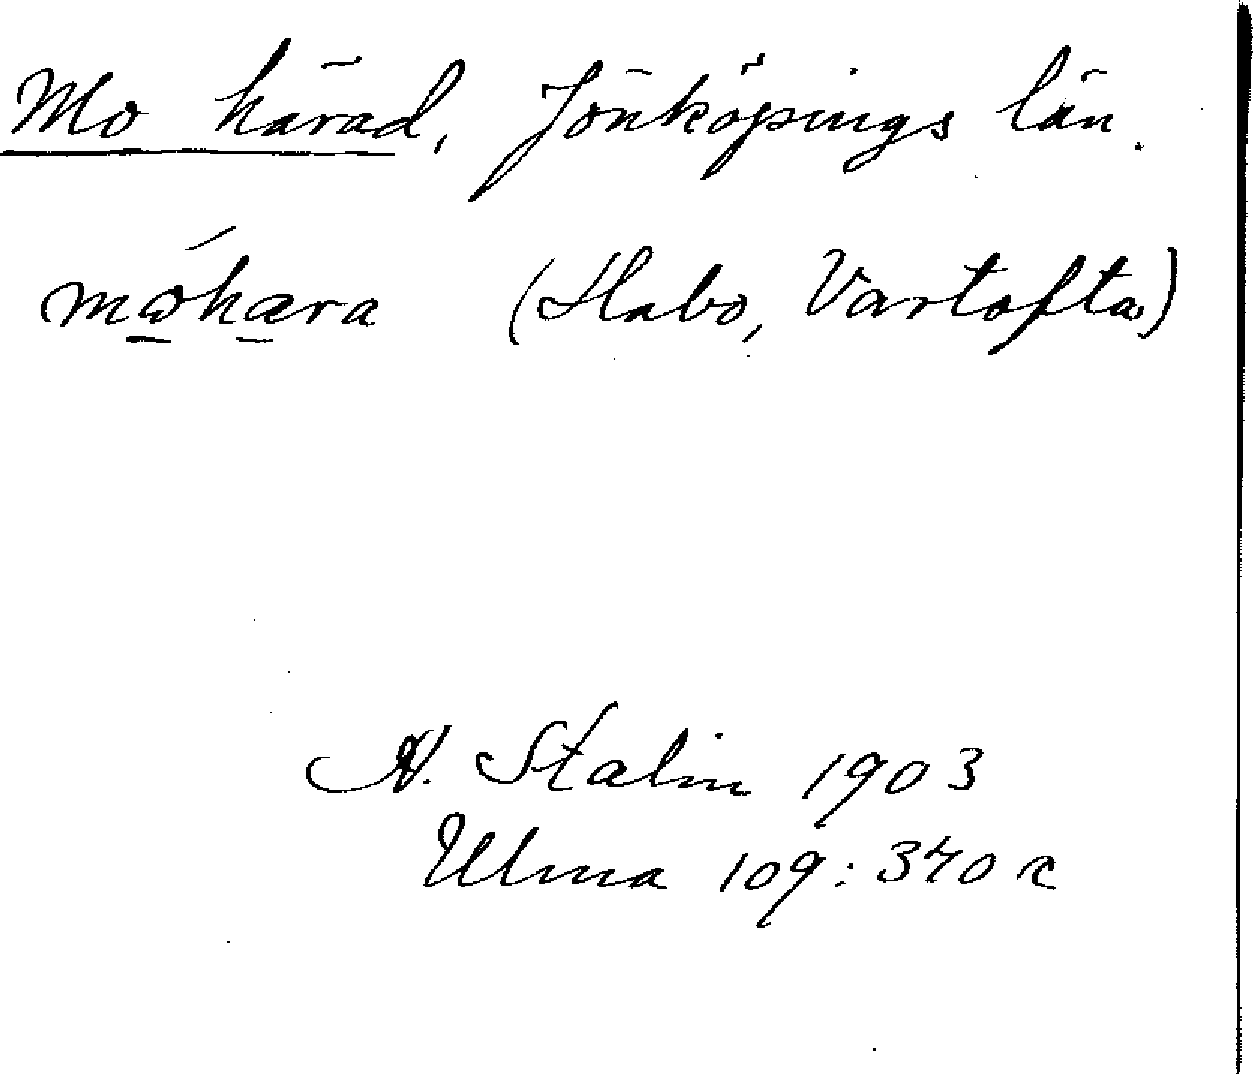 Mo härad, Jönköpings län.
mωhæra (Habo, Vartofta)
N. Stalin 1903
Ulma 109:340 c